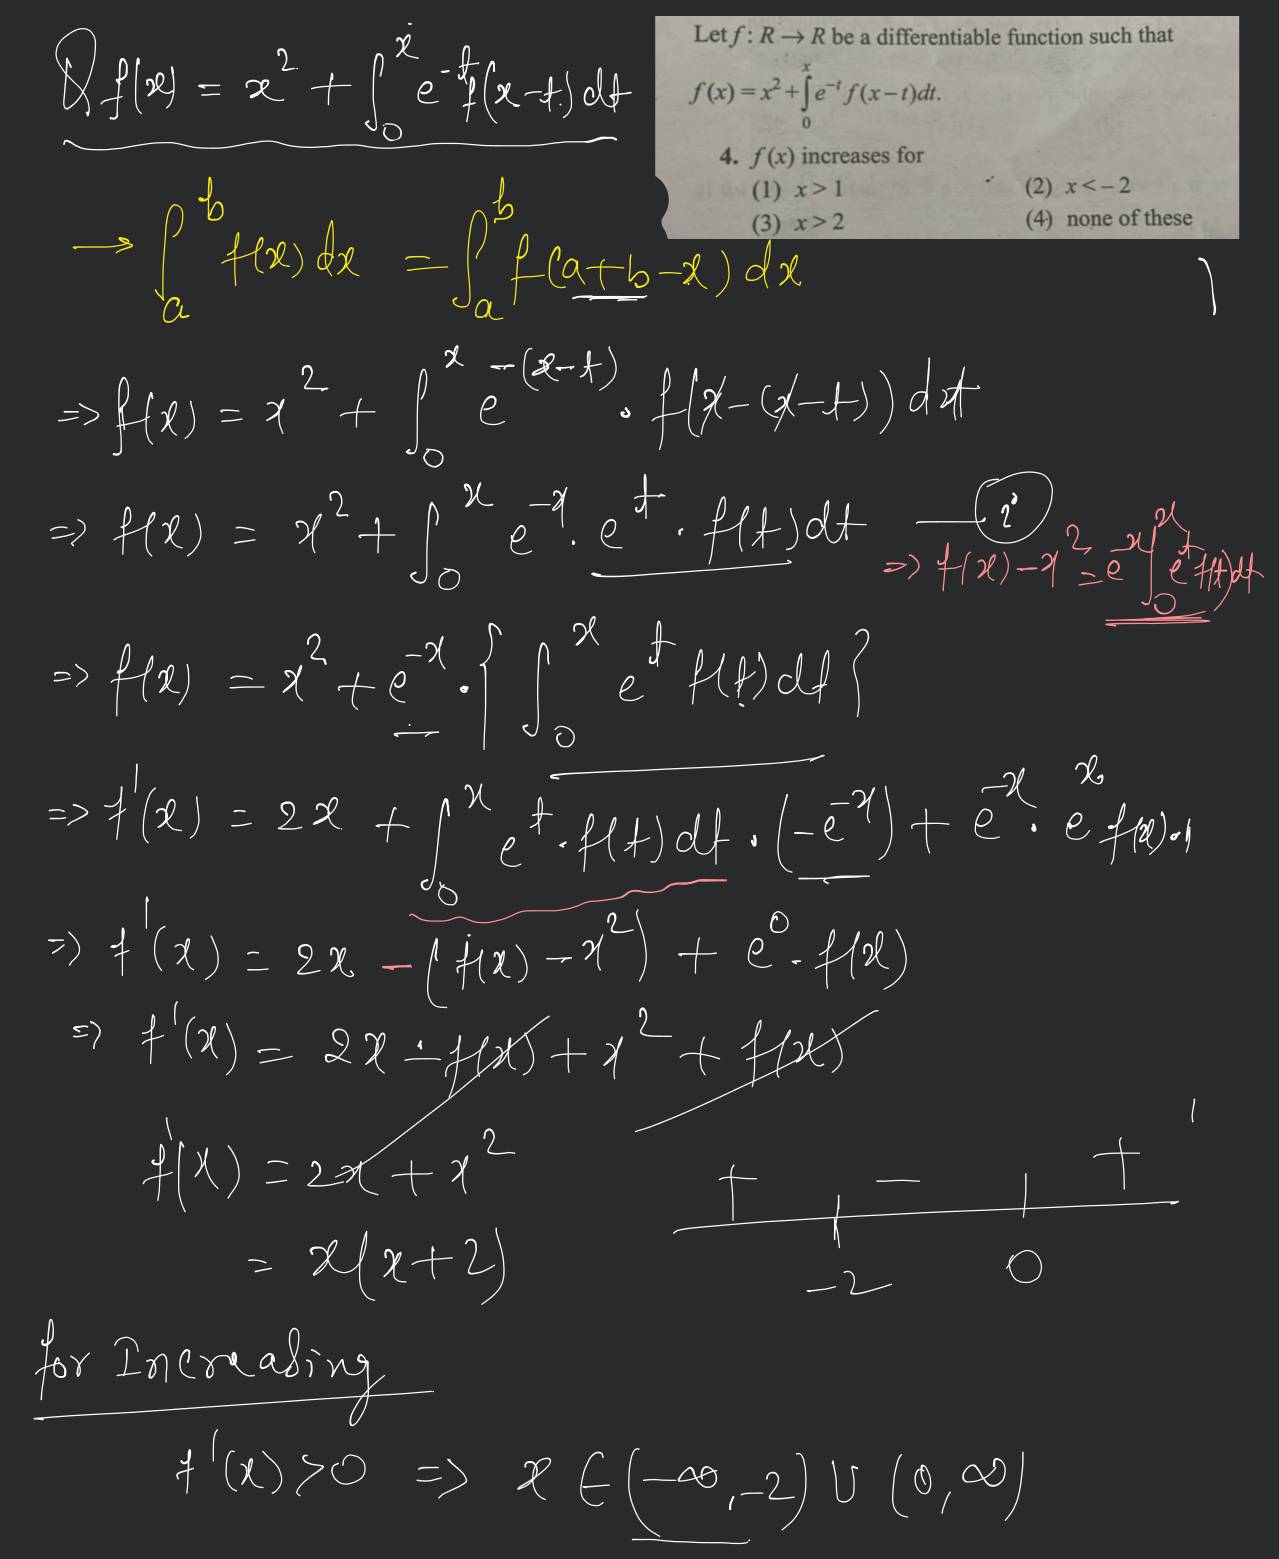 Q f(x) = x² + ∫₀ˣ e⁻ᵗ f(x-t) dt
Let f : R → R be a differentiable function such that
f(x) = x² + ∫₀ˣ e⁻ᵗ f(x−t)dt.
4. f(x) increases for
(1) x > 1 (2) x < −2
(3) x > 2 (4) none of these
→ ∫ₐᵇ f(x) dx = ∫ₐᵇ f(a+b-x) dx
=> f(x) = x² + ∫₀ˣ e^-(x-t) · f(x-(x-t)) dt
=> f(x) = x² + ∫₀ˣ e⁻ˣ · eᵗ · f(t) dt
=> f(x) - x² = e⁻ˣ ∫₀ˣ eᵗ f(t) dt
=> f(x) = x² + e⁻ˣ · { ∫₀ˣ eᵗ f(t) dt }
=> f'(x) = 2x + ∫₀ˣ eᵗ · f(t) dt · (-e⁻ˣ) + e⁻ˣ · eˣ f(x) · 1
=> f'(x) = 2x - (f(x) - x²) + e⁰ · f(x)
=> f'(x) = 2x - f(x) + x² + f(x)
f'(x) = 2x + x²
= x(x+2)
+ - +
-2 0
for Increasing
f'(x) > 0 => x ∈ (-∞, -2) ∪ (0, ∞)